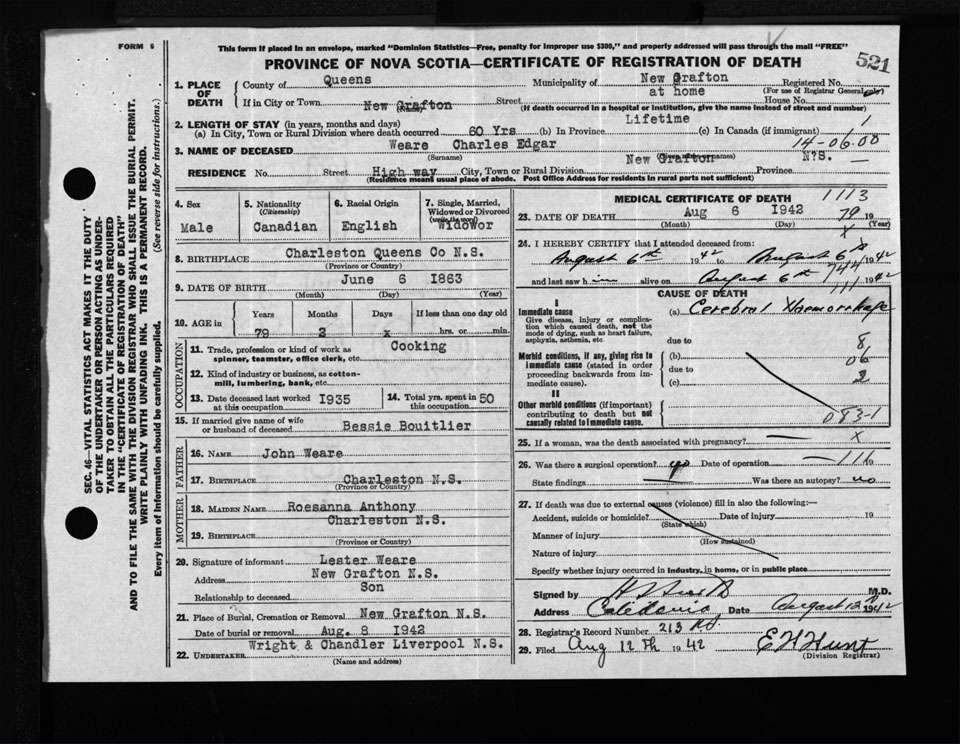 FORM 6
This form if placed in an envelope, marked "Dominion Statistics—Free, penalty for improper use $300," and properly addressed will pass through the mail "FREE"
PROVINCE OF NOVA SCOTIA—CERTIFICATE OF REGISTRATION OF DEATH
521
SEC. 46—VITAL STATISTICS ACT MAKES IT THE DUTY
OF THE UNDERTAKER OR PERSON ACTING AS UNDER-
TAKER TO OBTAIN ALL THE PARTICULARS REQUIRED
IN THE "CERTIFICATE OF REGISTRATION OF DEATH"
AND TO FILE THE SAME WITH THE DIVISION REGISTRAR WHO SHALL ISSUE THE BURIAL PERMIT.
WRITE PLAINLY WITH UNFADING INK. THIS IS A PERMANENT RECORD.
Every item of Information should be carefully supplied. (See reverse side for instructions.)
1. PLACE OF DEATH
County of Queens Municipality of New Grafton Registered No.
at home (For use of Registrar General only)
If in City or Town New Grafton Street House No.
(Name) (If death occurred in a hospital or institution, give the name instead of street and number)
2. LENGTH OF STAY (in years, months and days) Lifetime 1
(a) In City, Town or Rural Division where death occurred 60 Yrs (b) In Province (c) In Canada (if immigrant)
3. NAME OF DECEASED Weare Charles Edgar 14-06.00
(Surname) names)
RESIDENCE No. Street High way City, Town or Rural Division New Grafton Province N?S.
(Residence means usual place of abode. Post Office Address for residents in rural parts not sufficient)
4. Sex
Male
5. Nationality
(Citizenship)
Canadian
6. Racial Origin
English
7. Single, Married,
Widowed or Divorced
(write the word)
Widowor
8. BIRTHPLACE Charleston Queens Co N.S.
(Province or Country)
9. DATE OF BIRTH June 6 1863
(Month) (Day) (Year)
10. AGE in
Years Months Days If less than one day old
79 2 x hrs. or min.
OCCUPATION
11. Trade, profession or kind of work as
spinner, teamster, office clerk, etc. Cooking
12. Kind of industry or business, as cotton-
mill, lumbering, bank, etc.
13. Date deceased last worked
at this occupation 1935
14. Total yrs. spent in
this occupation 50
15. If married give name of wife
or husband of deceased Bessie Bouitlier
FATHER
16. NAME John Weare
17. BIRTHPLACE Charleston N.S.
(Province or Country)
MOTHER
18. MAIDEN NAME Roesanna Anthony
19. BIRTHPLACE Charleston N.S.
(Province or Country)
20. Signature of informant Lester Weare
Address New Grafton N.S.
Relationship to deceased Son
21. Place of Burial, Cremation or Removal New Grafton N.S.
Date of burial or removal Aug. 8 1942
22. UNDERTAKER Wright & Chandler Liverpool N.S.
(Name and address)
MEDICAL CERTIFICATE OF DEATH 1113
23. DATE OF DEATH Aug 6 1942 79 19
(Month) (Day) (Year)
x
24. I HEREBY CERTIFY that I attended deceased from:
August 6th 1942 to August 6 1942
and last saw h im alive on August 6th 1942
CAUSE OF DEATH
I
Immediate cause
Give disease, injury or complica-
tion which caused death, not the
mode of dying, such as heart failure,
asphyxia, asthenia, etc.
(a) Cerebral Haemorrhage
due to
Morbid conditions, if any, giving rise to
immediate cause (stated in order
proceeding backwards from im-
mediate cause).
(b)
due to
(c)
8
06
2
II
Other morbid conditions (if important)
contributing to death but not
causally related to immediate cause.
083-1
25. If a woman, was the death associated with pregnancy? x
26. Was there a surgical operation? Date of operation 116
State findings Was there an autopsy? no
27. If death was due to external causes (violence) fill in also the following:—
Accident, suicide or homicide? Date of injury 19
(State which)
Manner of injury
(How sustained)
Nature of injury
Specify whether injury occurred in industry, in home, or in public place
Signed by M.D.
Address Caledonia Date August 12 1942
28. Registrar's Record Number 213
29. Filed Aug 12 Th 1942 E H Hunt
(Division Registrar)